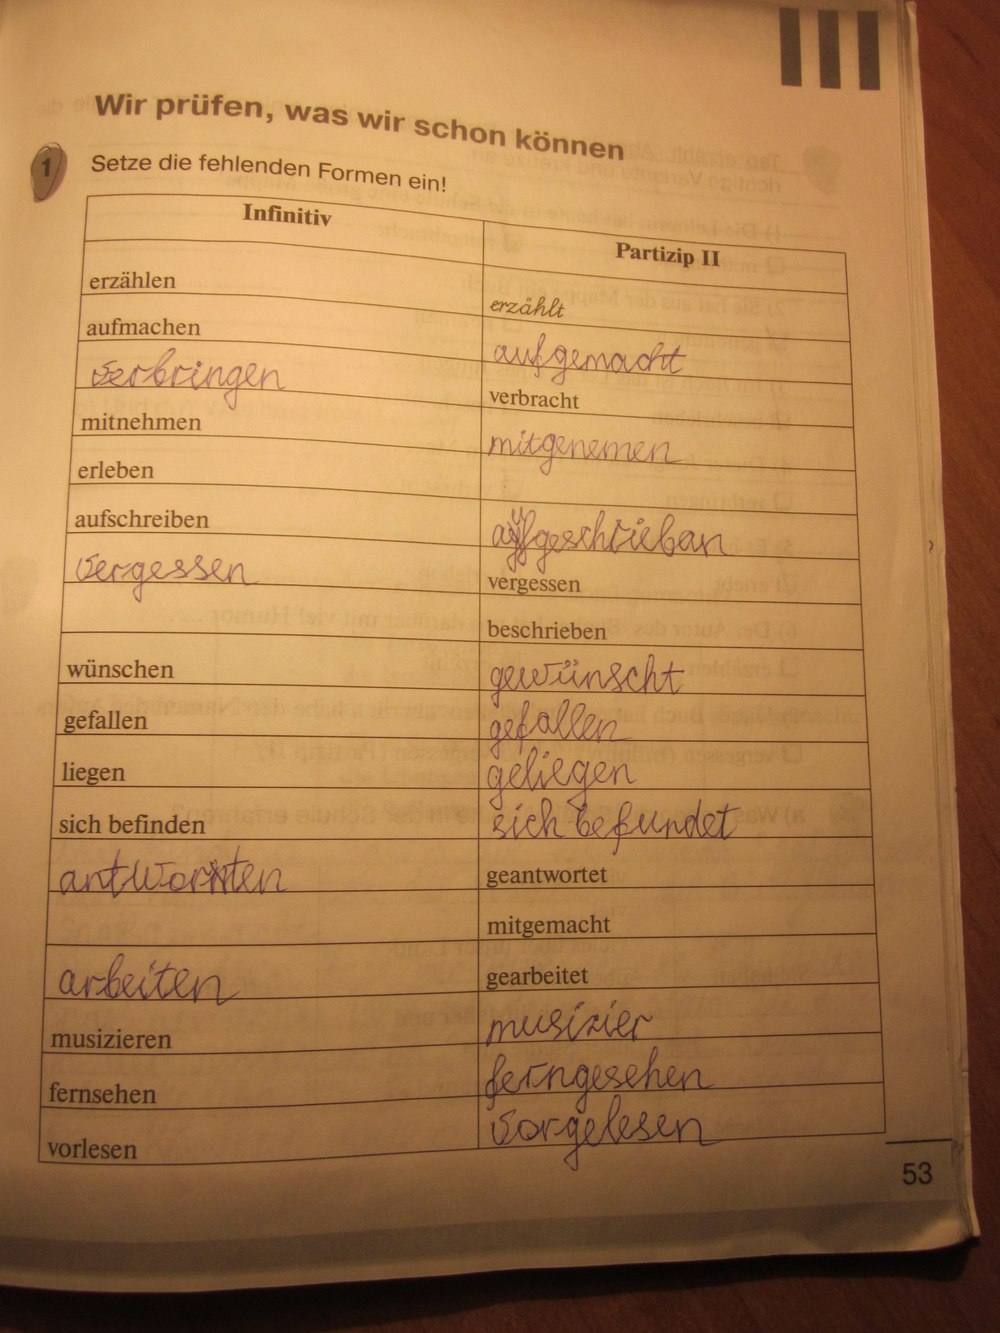 Wir prüfen, was wir schon können
1 Setze die fehlenden Formen ein!
Infinitiv Partizip II
erzählen erzählt
aufmachen aufgemacht
verbringen verbracht
mitnehmen mitgenemen
erleben
aufschreiben aufgeschrieban
vergessen vergessen
beschrieben
wünschen gewünscht
gefallen gefallen
liegen geliegen
sich befinden sich befundet
antworten geantwortet
mitgemacht
arbeiten gearbeitet
musizieren musizier
fernsehen ferngesehen
vorlesen vorgelesen
53